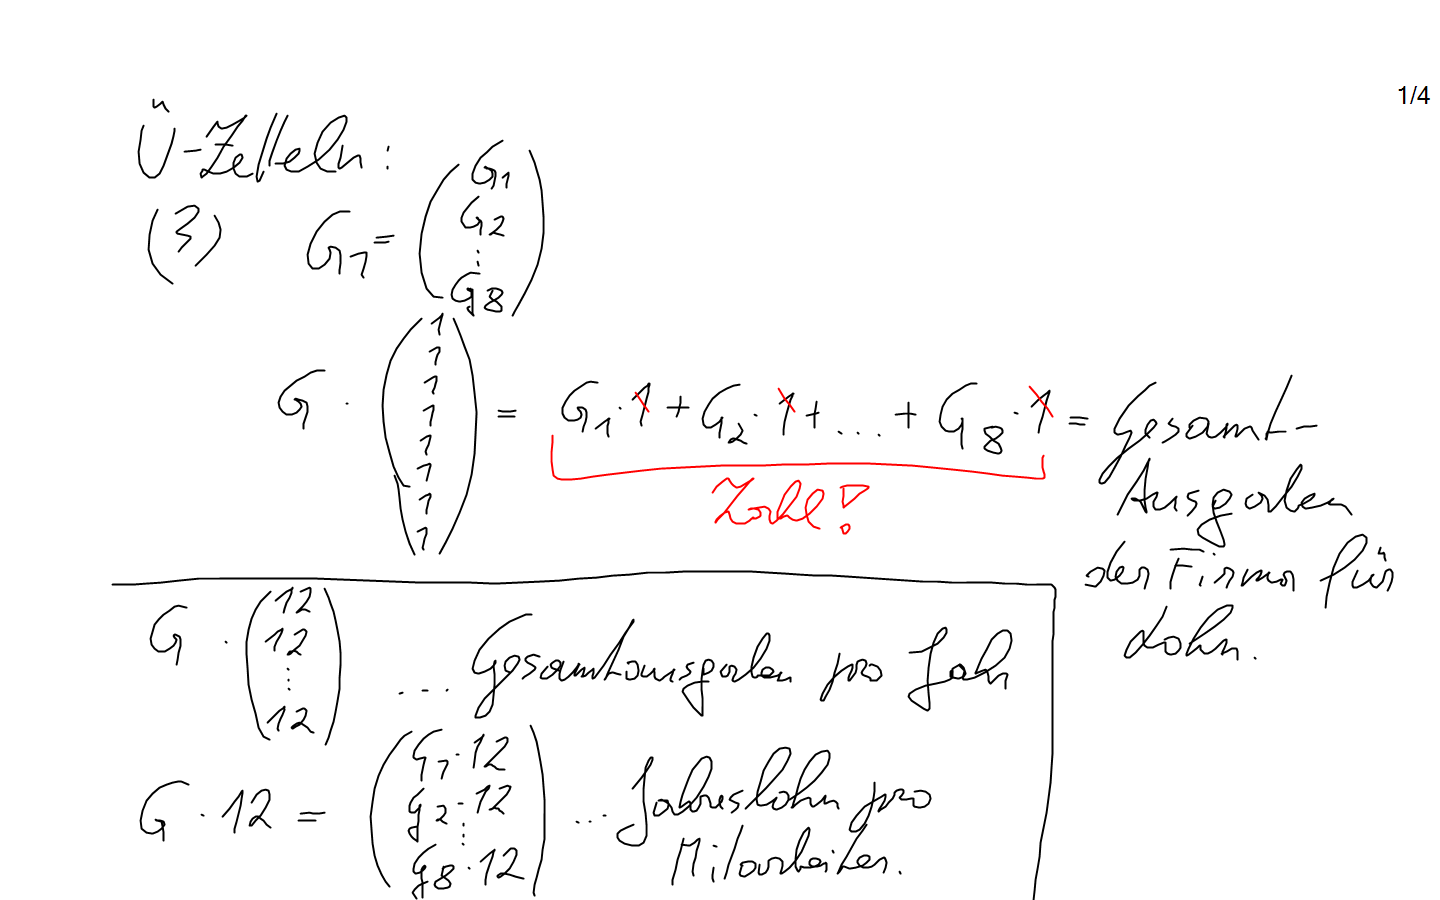 1/4
Ü-Zetteln:
(3) G1 = (G1 G2 ⋮ G8)
G · (1 1 1 1 1 1 1 1) = G1·1 + G2·1 + ... + G8·1 = Gesamt-
Ausgaben
der Firma für
Lohn.
Zahl!
G · (12 12 ⋮ 12) ... Gesamtausgaben pro Jahr
G · 12 = (G1·12 G2·12 ⋮ G8·12) ... Jahreslohn pro
Mitarbeiter.